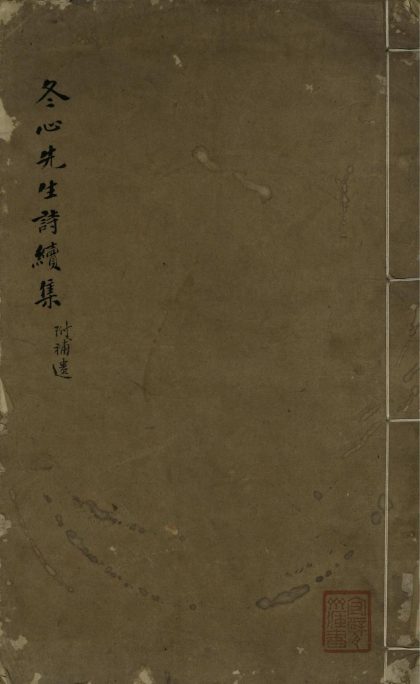 冬心先生詩續集
附補遺